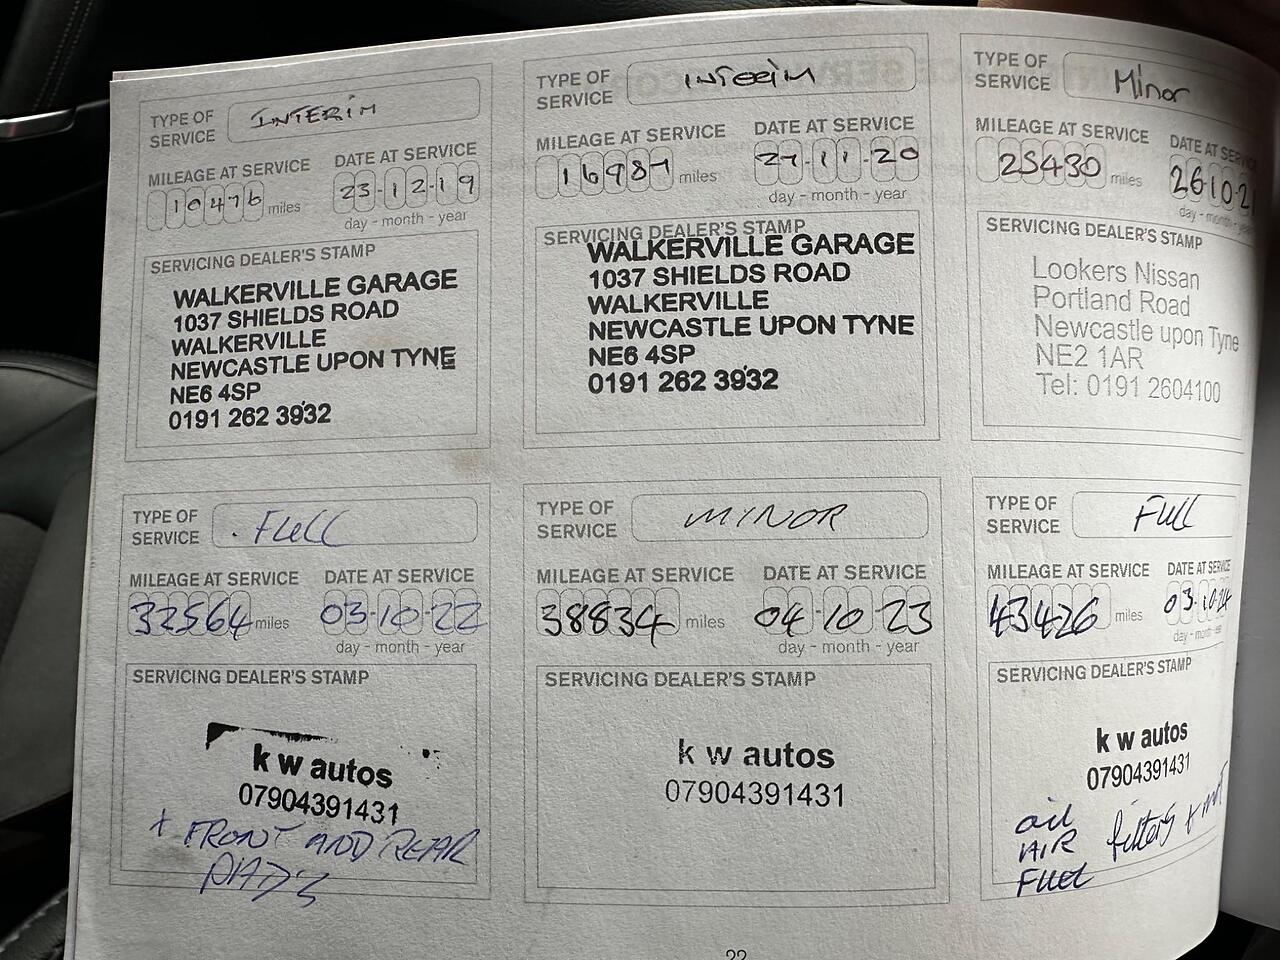 TYPE OF
SERVICE
INTERIM
MILEAGE AT SERVICE
10476 miles
DATE AT SERVICE
23-12-19
day - month - year
SERVICING DEALER'S STAMP
WALKERVILLE GARAGE
1037 SHIELDS ROAD
WALKERVILLE
NEWCASTLE UPON TYNE
NE6 4SP
0191 262 3932
TYPE OF
SERVICE
INTERIM
MILEAGE AT SERVICE
16987 miles
DATE AT SERVICE
27-11-20
day - month - year
SERVICING DEALER'S STAMP
WALKERVILLE GARAGE
1037 SHIELDS ROAD
WALKERVILLE
NEWCASTLE UPON TYNE
NE6 4SP
0191 262 3932
TYPE OF
SERVICE
Minor
MILEAGE AT SERVICE
25430 miles
DATE AT SERVICE
26-10-21
day - month - year
SERVICING DEALER'S STAMP
Lookers Nissan
Portland Road
Newcastle upon Tyne
NE2 1AR
Tel: 0191 2604100
TYPE OF
SERVICE
FULL
MILEAGE AT SERVICE
32564 miles
DATE AT SERVICE
03-10-22
day - month - year
SERVICING DEALER'S STAMP
k w autos
07904391431
+ FRONT AND REAR
PADS
TYPE OF
SERVICE
MINOR
MILEAGE AT SERVICE
38834 miles
DATE AT SERVICE
04-10-23
day - month - year
SERVICING DEALER'S STAMP
k w autos
07904391431
TYPE OF
SERVICE
FULL
MILEAGE AT SERVICE
43426 miles
DATE AT SERVICE
03-10-24
day - month - year
SERVICING DEALER'S STAMP
k w autos
07904391431
oil
AIR filters +
FUEL
22